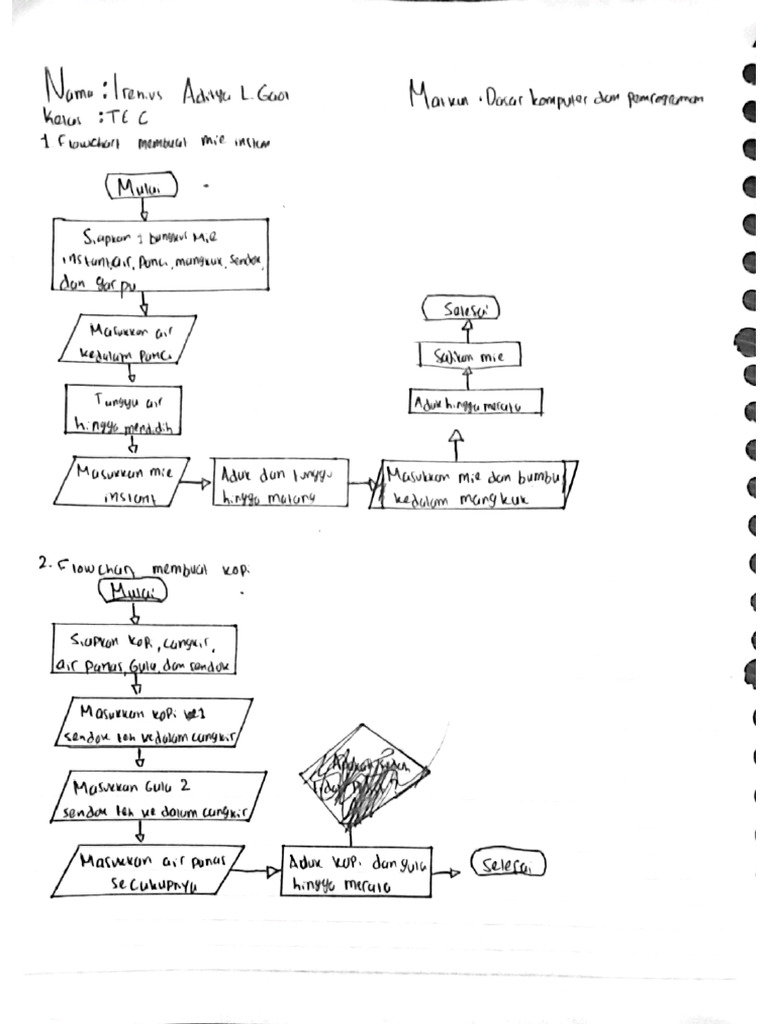 Nama : Irenius Aditya L. Gaol
Matkul : Dasar komputer dan pemrograman
Kelas : TE C
1. Flowchart membuat mie instan
Mulai
Siapkan 1 bungkus Mie
instant, air, panci, mangkuk, sendok,
dan garpu
Masukkan air
kedalam panci
Tunggu air
hingga mendidih
Masukkan mie
instant
Aduk dan tunggu
hingga matang
Masukkan mie dan bumbu
kedalam mangkuk
Aduk hingga merata
Sajikan mie
Selesai
2. Flowchart membuat kopi
Mulai
Siapkan kopi, cangkir,
air panas, Gula, dan sendok
Masukkan kopi 1
sendok teh kedalam cangkir
Masukkan Gula 2
sendok teh ke dalam cangkir
Masukkan air panas
secukupnya
Aduk kopi dan gula
hingga merata
Selesai